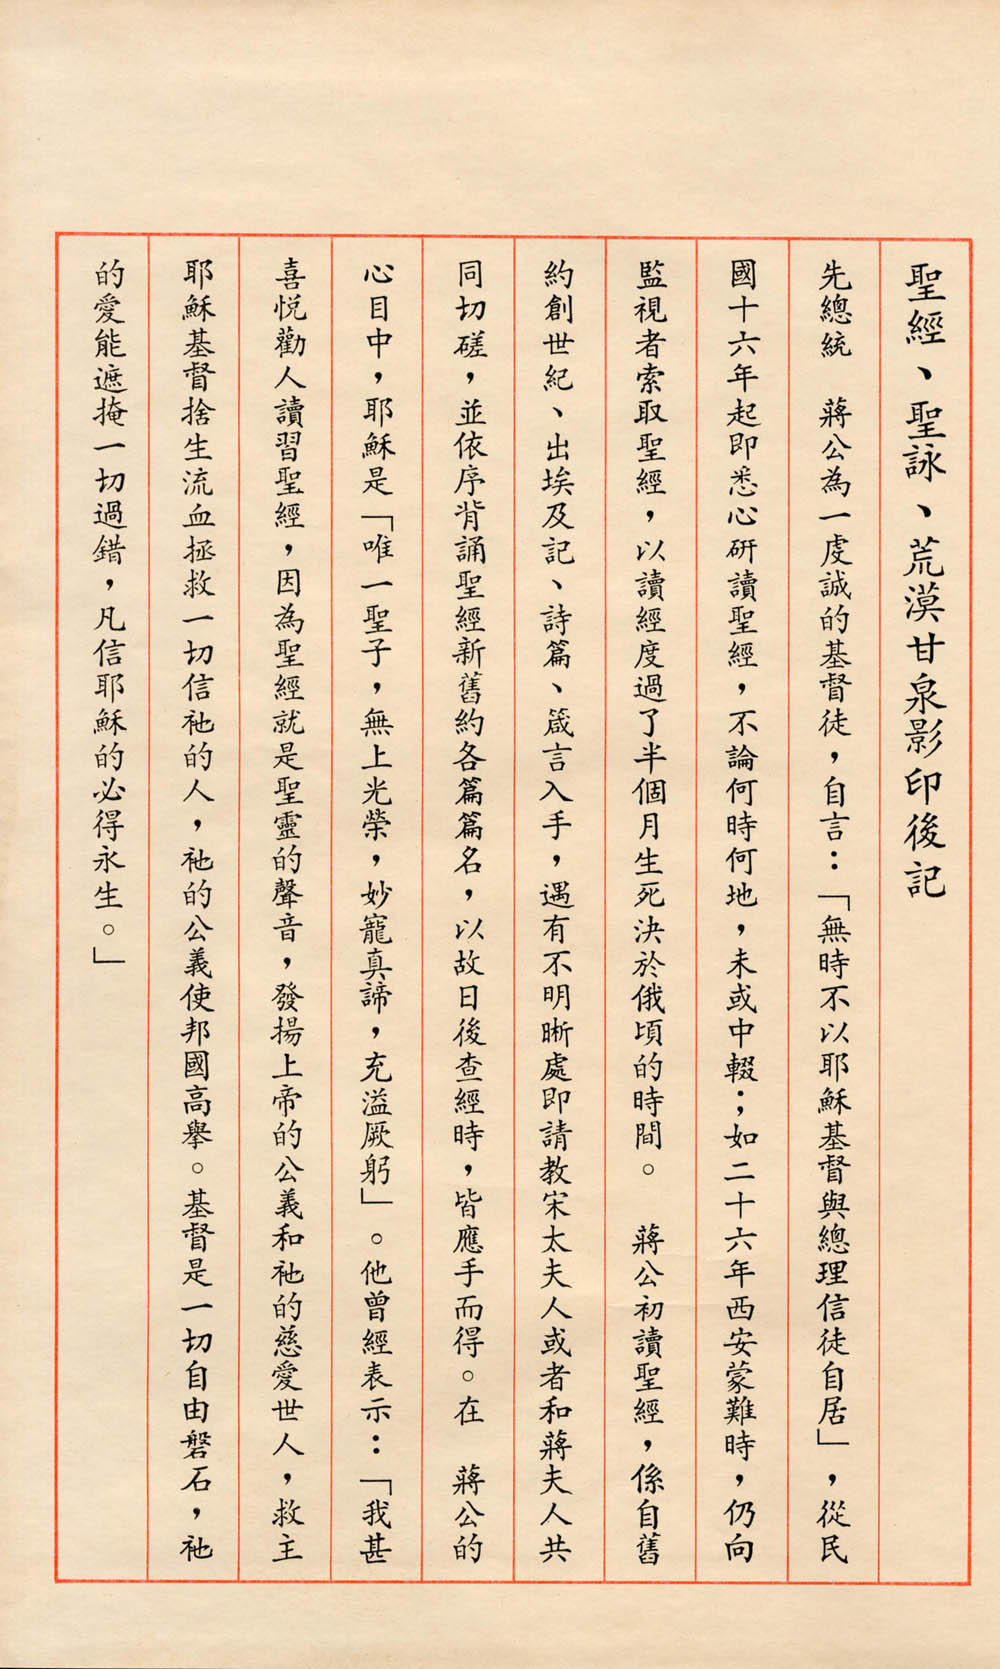 聖經、聖詠、荒漠甘泉影印後記
先總統　蔣公為一虔誠的基督徒，自言：「無時不以耶穌基督與總理信徒自居」，從民
國十六年起即悉心研讀聖經，不論何時何地，未或中輟；如二十六年西安蒙難時，仍向
監視者索取聖經，以讀經度過了半個月生死決於俄頃的時間。　蔣公初讀聖經，係自舊
約創世紀、出埃及記、詩篇、箴言入手，遇有不明晰處即請教宋太夫人或者和蔣夫人共
同切磋，並依序背誦聖經新舊約各篇篇名，以故日後查經時，皆應手而得。在　蔣公的
心目中，耶穌是「唯一聖子，無上光榮，妙寵真諦，充溢厥躬」。他曾經表示：「我甚
喜悅勸人讀習聖經，因為聖經就是聖靈的聲音，發揚上帝的公義和祂的慈愛世人，救主
耶穌基督捨生流血拯救一切信祂的人，祂的公義使邦國高舉。基督是一切自由磐石，祂
的愛能遮掩一切過錯，凡信耶穌的必得永生。」